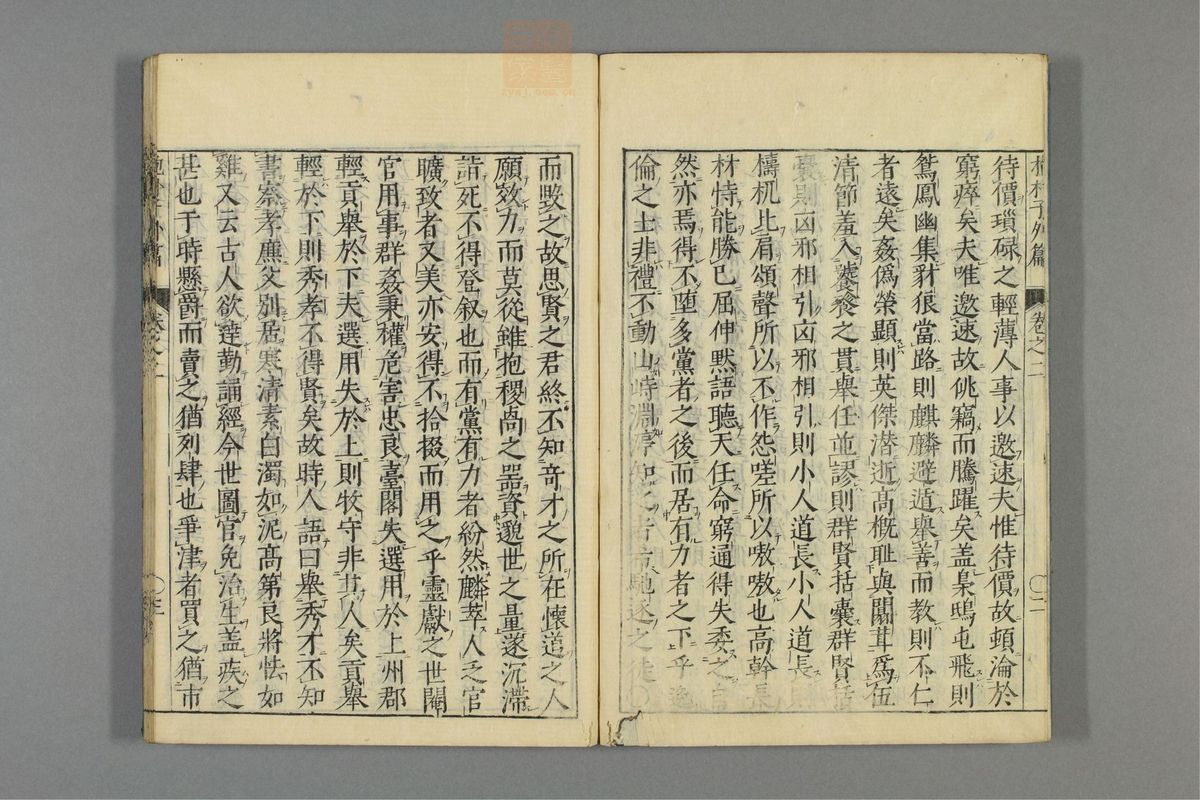 待價瑣碌之輕薄人事以邀速夫惟待價故頓淪於
窮瘁矣夫唯邀速故佻竊而騰躍矣盖梟鴟屯飛則
鴛鳳幽集豺狼當路則麒麟避遁舉善而教則不仁
者遠矣姦僞榮顯則英傑潜逝高概耻與闒茸爲伍
清節羞入饕餮之貫舉任並謬則群賢括囊群賢括
囊則凶邪相引凶邪相引則小人道長小人道長
檮杌比肩頌聲所以不作怨嗟所以嗷嗷也高幹長
材恃能勝己屈伸黙語聽天任命窮通得失委之自
然亦焉得不堕多黨者之後而居有力者之下乎逸
倫之士非禮不動山峙淵渟知之者希馳逐之徒
而斃之故思賢之君終不知奇才之所在懷道之人
願效力而莫從雖抱稷卨之器資邈世之量遂沉滯
詣死不得登叙也而有黨有力者紛然麟萃人乏官
曠致者又美亦安得不拾掇而用之乎靈獻之世閹
官用事群姦秉權危害忠良臺閣失選用於上州郡
輕貢舉於下夫選用失於上則牧守非其人矣貢舉
輕於下則秀孝不得賢矣故時人語曰舉秀才不知
書察孝廉父別居寒清素白濁如泥高第良將怯如
雞又云古人欲達勤誦經今世圖官免治生盖疾之
甚也于時懸爵而賣之猶列肆也爭津者買之猶市
抱朴子外篇
卷之二
〇二
卷之二
〇三